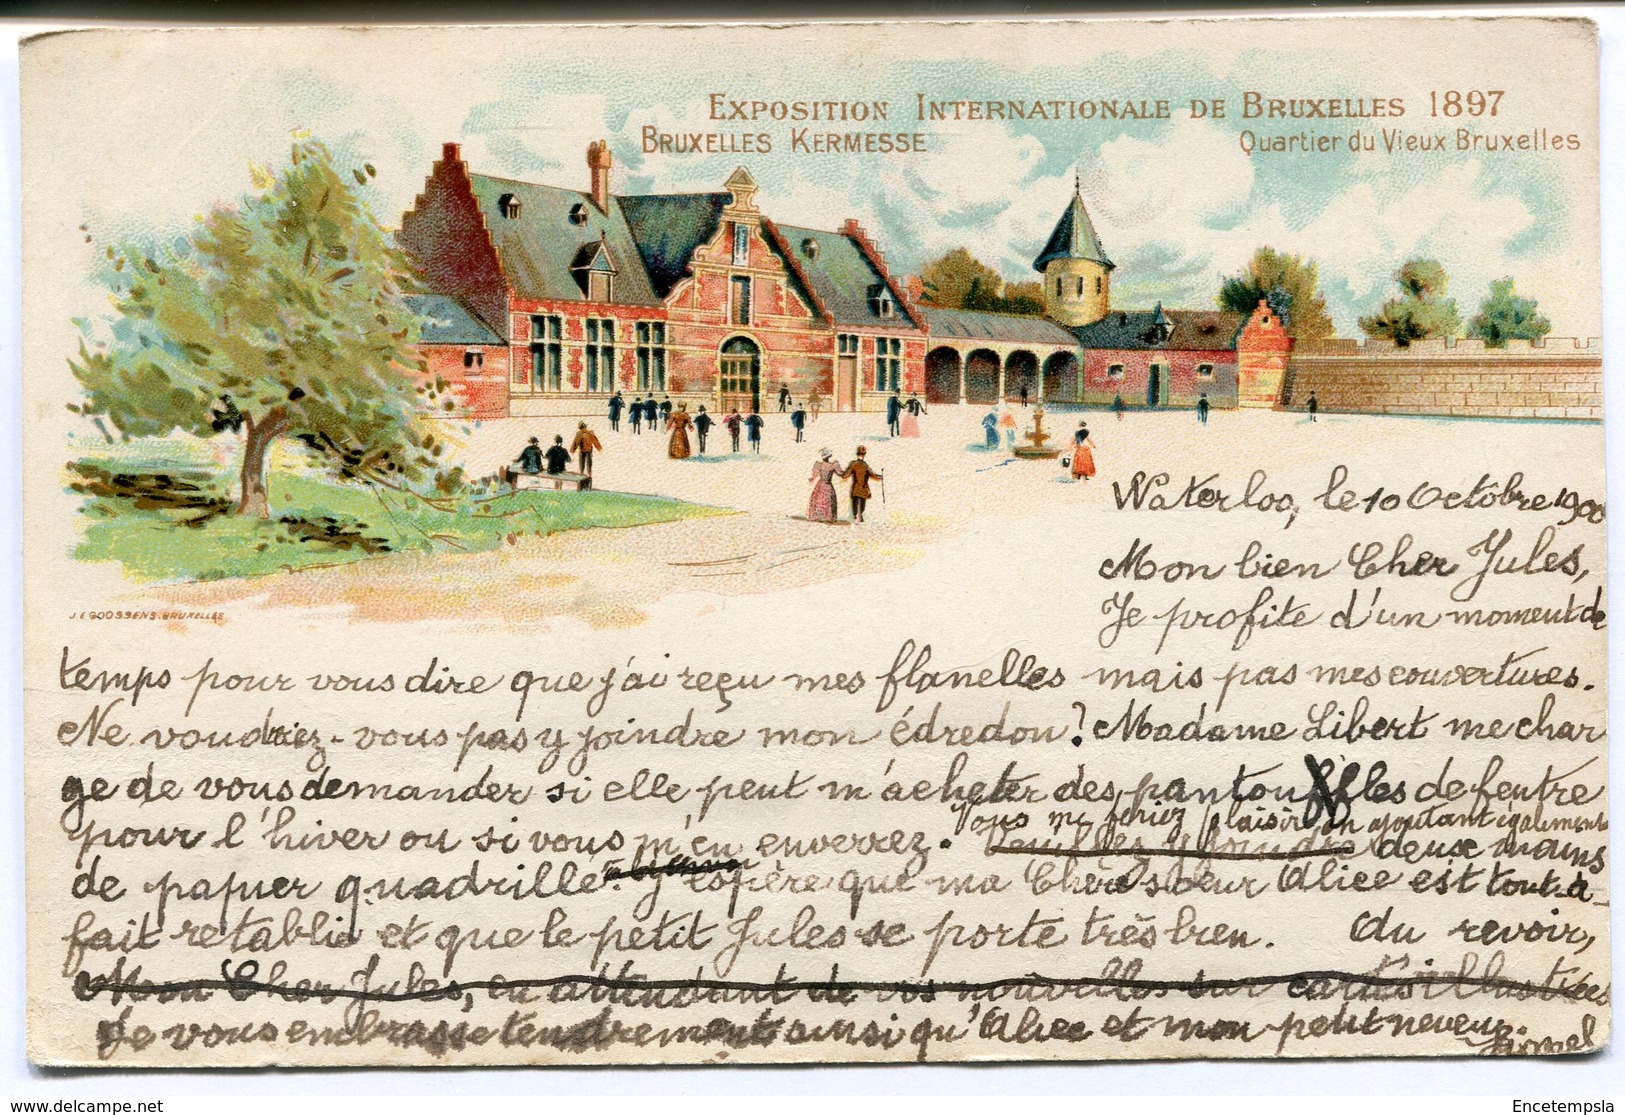 EXPOSITION INTERNATIONALE DE BRUXELLES 1897
BRUXELLES KERMESSE
Quartier du Vieux Bruxelles
J.E GOOSSENS. BRUXELLES
Waterloo, le 10 Octôbre 1900
Mon bien Cher Jules,
Je profite d'un moment de
temps pour vous dire que j'ai reçu mes flanelles mais pas mes couvertures.
Ne voudriez-vous pas y joindre mon édredon? Madame Libert me char
ge de vous demander si elle peut m'acheter des pantoufles de feutre
pour l'hiver ou si vous m'en enverrez. Vous me feriez plaisir en ajoutant également
Veuillez y joindre deux mains
de papier quadrillé. J'espère que ma Chère soeur Alice est tout-à-
fait retablie et que le petit Jules se porte très bien. Au revoir,
Mon Cher Jules, en attendant de vos nouvelles sur cartes illustrées
je vous embrasse tendrement ainsi qu'Alice et mon petit neveu.
www.delcampe.net
Encetempsla